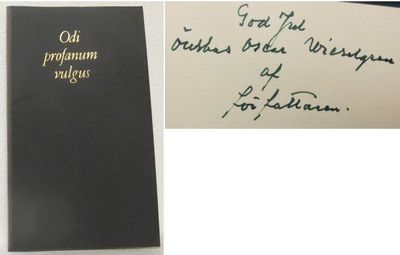 Odi
profanum
vulgus
God Jul
önskas Oscar Wieselgren
af
författaren.